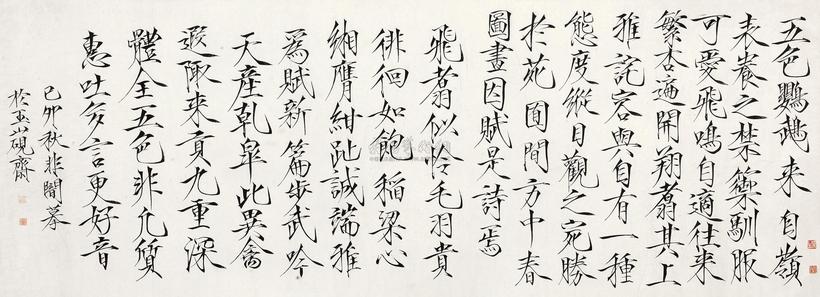 五色鸚鵡來自嶺
表養之禁籞馴服
可愛飛鳴自適往來
繁杏遍開翔翥其上
雅詫容與自有一種
態度縱目觀之宛勝
於苑囿間方中春
圖畫因賦是詩焉
飛翥似憐毛羽貴
徘徊如飽稻梁心
緗膺紺趾誠端雅
爲賦新篇步武吟
天產乾皐此異禽
遐陬來貢九重深
體全五色非凡質
惠吐多言更好音
己卯秋非闇摹
於玉山硯齋